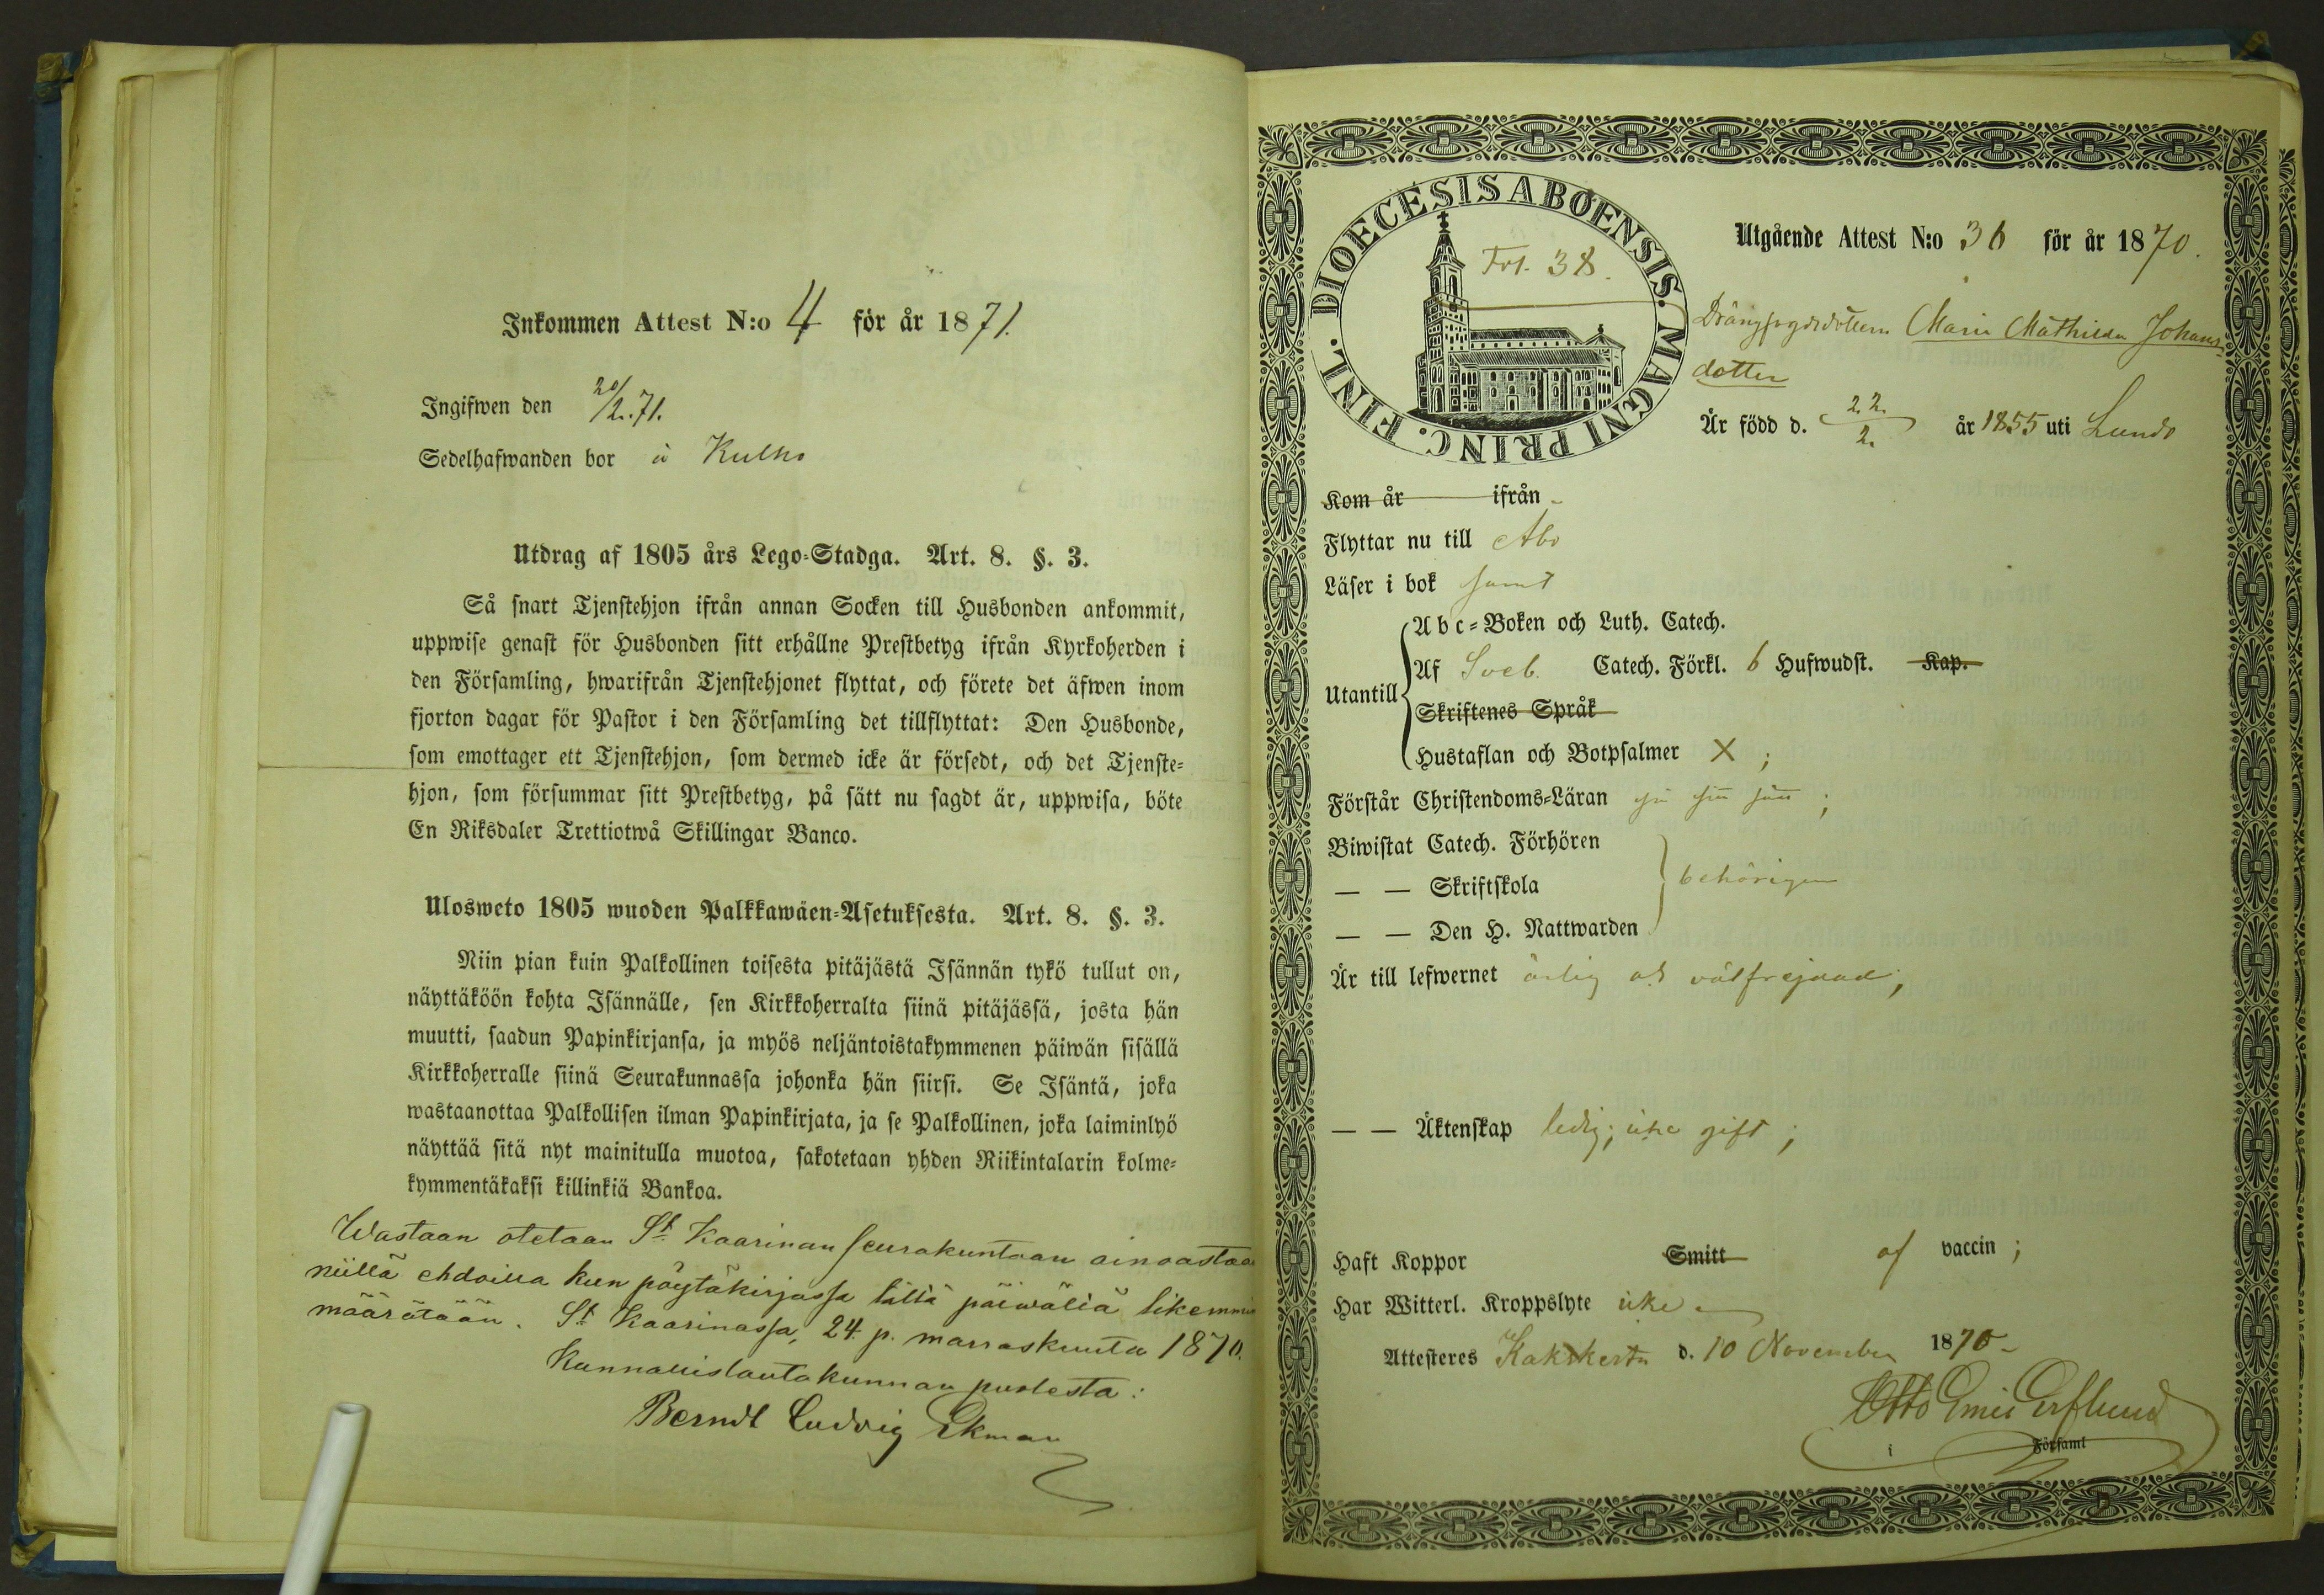 Inkommen Attest N:o 4 för år 1871.
Ingifwen den 20/2.71.
Sedelhafwanden bor å Kulho
Utdrag af 1805 års Lego-Stadga. Art. 8. §. 3.
Så snart Tjenstehjon ifrån annan Socken till Husbonden ankommit,
uppwise genast för Husbonden sitt erhållne Prestbetyg ifrån Kyrkoherden i
den Församling, hwarifrån Tjenstehjonet flyttat, och förete det äfwen inom
fjorton dagar för Pastor i den Församling det tillflyttat: Den Husbonde,
som emottager ett Tjenstehjon, som dermed icke är försedt, och det Tjenste-
hjon, som försummar sitt Prestbetyg, på sätt nu sagdt är, uppwisa, böte
En Riksdaler Trettiotwå Skillingar Banco.
Ulosweto 1805 wuoden Palkkawäen-Asetuksesta. Art. 8. §. 3.
Niin pian kuin Palkollinen toisesta pitäjästä Isännän tykö tullut on,
näyttäköön kohta Isännälle, sen Kirkkoherralta siinä pitäjässä, josta hän
muutti, saadun Papinkirjansa, ja myös neljäntoistakymmenen päiwän sisällä
Kirkkoherralle siinä Seurakunnassa johonka hän siirsi. Se Isäntä, joka
wastaanottaa Palkollisen ilman Papinkirjata, ja se Palkollinen, joka laiminlyö
näyttää sitä nyt mainitulla muotoa, sakotetaan yhden Riikintalarin kolme-
kymmentäkaksi killinkiä Bankoa.
Wastaan otetaan St Kaarinan seurakuntaan ainoastaa
niillä ehdoilla kun pöytäkirjassa tältä päiwältä likemmi
määrätään. St Kaarinassa, 24 p. marraskuuta 1870.
Kunnallislautakunnan puolesta:
Berndt Ludvig Ekman
DIOECESIS ABOENSIS. MAGNI PRINC. FINL.
Fol. 38.
Utgående Attest N:o 36 för år 1870.
Maria Mathilda Johans-
dotter
Är född d. 22./2. år 1855 uti Lundo
Kom år ifrån
Flyttar nu till Åbo
Läser i bok samt
Utantill
Abc-Boken och Luth. Catech.
Af Sveb. Catech. Förkl. 6 Hufwudst. Kap.
Skriftenes Språk
Hustaflan och Botpsalmer X ;
Förstår Christendoms-Läran
Biwistat Catech. Förhören
— — Skriftskola behörigen
— — Den H. Nattwarden
Är till lefwernet ärlig och välfrejdad;
— — Äktenskap ledig; icke gift;
Haft Koppor Smitt af vaccin ;
Har Witterl. Kroppslyte icke
Attesteres Kakskerta d. 10 November 1870
Otto Emil
i Församl